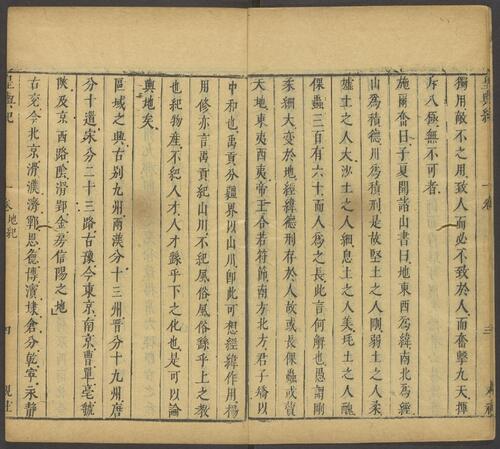 獨用敵不之用致人而必不致於人而奮擊九天揮
斥八極無不可者
施爾奮曰子夏開諸山書曰地東西爲緯南北爲經
山爲積德川爲積刑是故堅土之人剛弱土之人柔
壚土之人大沙土之人細息土之人美耗土之人醜
倮蟲三百有六十而人爲之長此言何解也愚謂剛
柔細大变於地經緯德刑存於人故或長倮蟲或贊
天地東夷西夷帝王合若符節南方北方君子矯以
中和也禹貢分疆界以山川卽此可想經緯作用楊
用修亦言禹貢紀山川不紀風俗風俗繇乎上之教
也紀物産不紀人才人才繇乎下之化也是可以論
輿地矣
區域之興古别九州兩漢分十三州晋分十九州唐
分十道宋分二十三路古豫今東京南京曹單亳虢
陝及京西路陰滑鄧金房信陽之地
右兖今北京滑濮濟鄆恩德博濱棣倉分乾寧永靜
卷
地紀
四